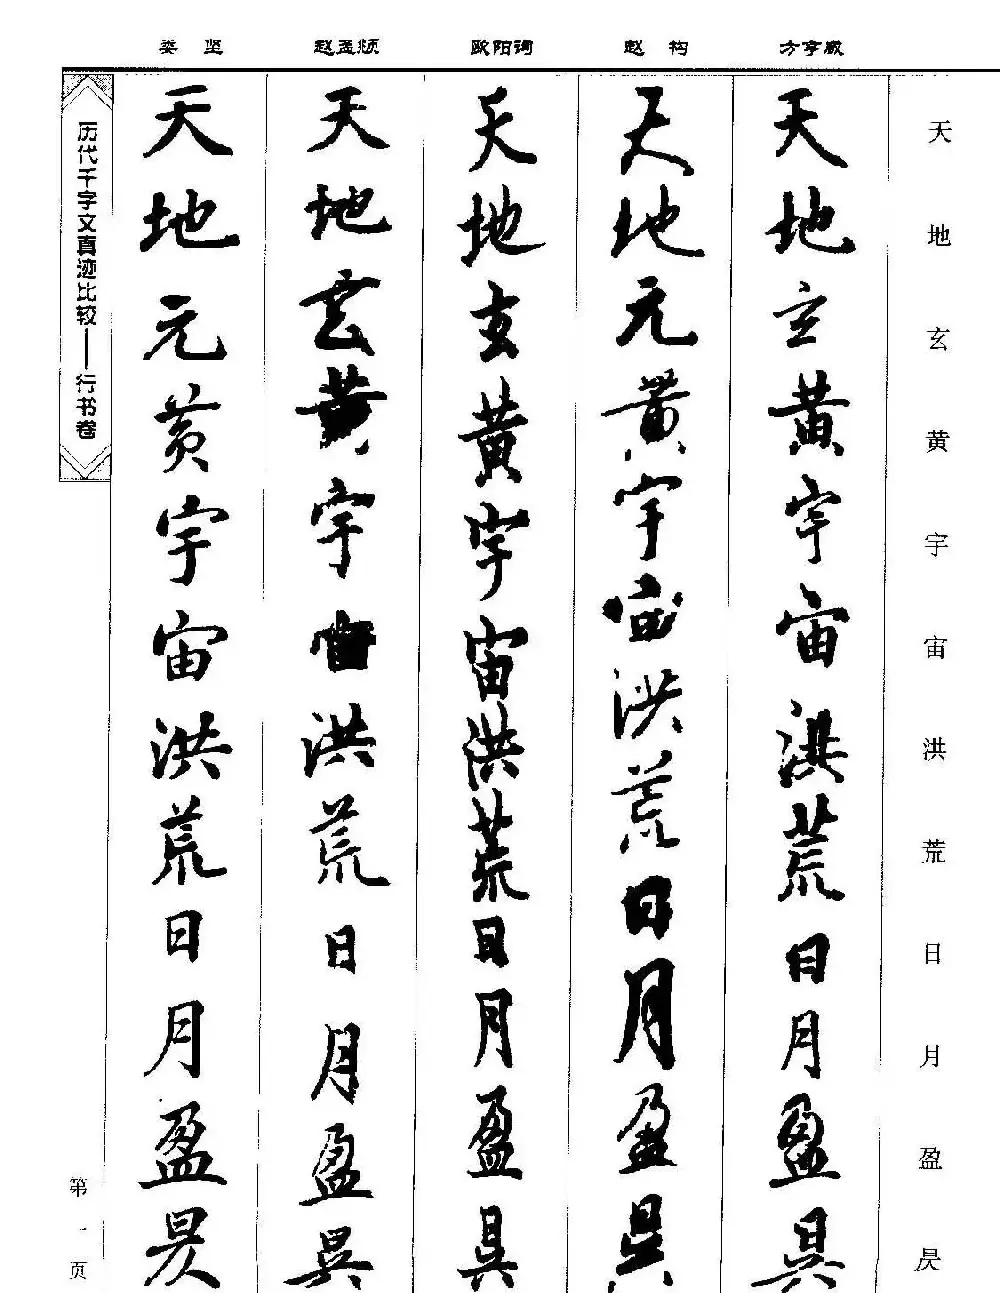 娄 坚 赵孟頫 欧阳询 赵 构 方亨咸
天地玄黄宇宙洪荒日月盈昃
天地玄黄宇宙洪荒日月盈昃
天地元黄宇宙洪荒日月盈昃
天地玄黄宇宙洪荒日月盈昃
天地玄黄宇宙洪荒日月盈昃
天地元黄宇宙洪荒日月盈昃
历代千字文真迹比较——行书卷
第一页